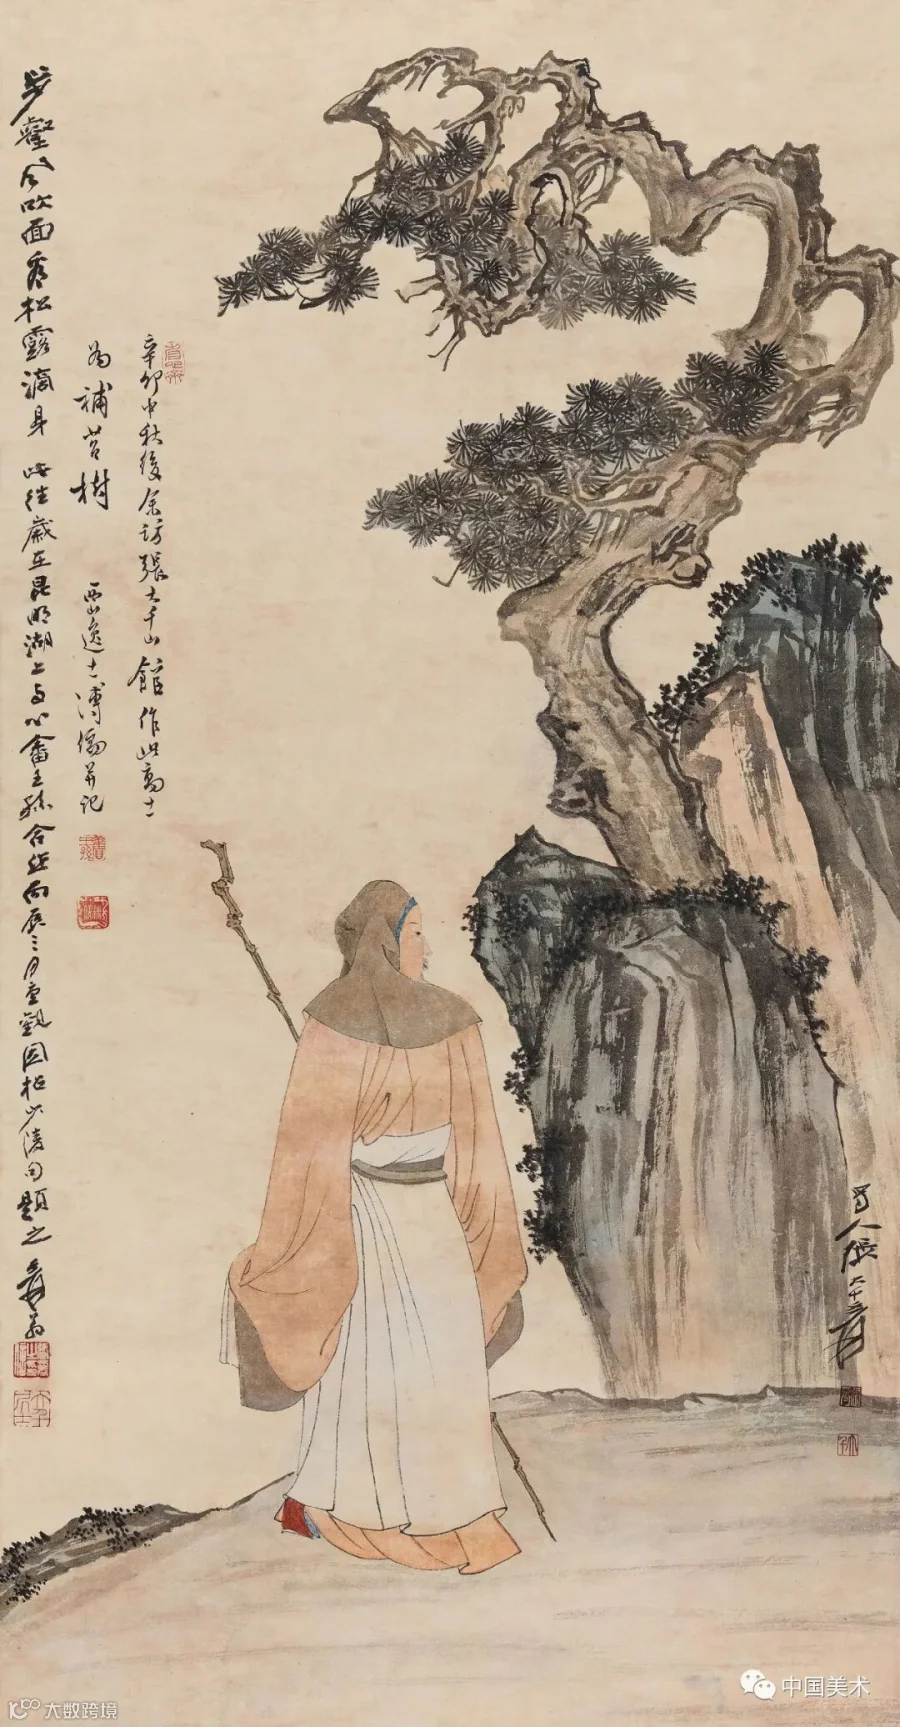 蜀人張大千爰
辛卯中秋後余訪張大千山館作此高士
為補苔樹 西山逸士溥儒并記
步壑風吹面看松露滴身 此往歲在昆明湖上与心畬王孫合作丙辰三月重觀因拈少陵句題之 爰翁
中国美术
大数跨境